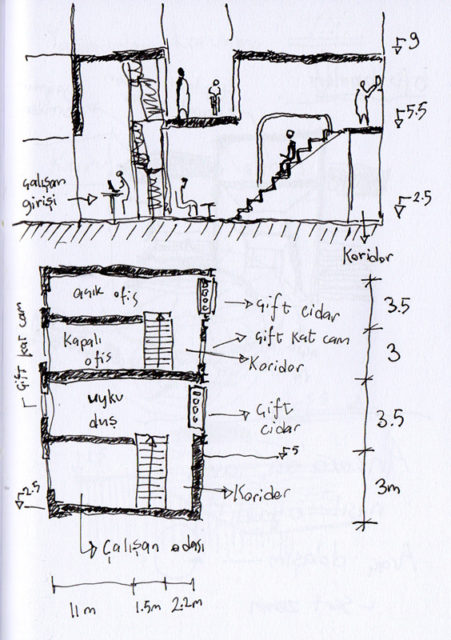 9
5.5
Çalışan
girişi
2.5
Koridor
açık ofis
Çift cidar
3.5
Çift kat cam
Kapalı
ofis
Çift kat cam
Koridor
3
uyku
duş
Çift
cidar
3.5
5
2.5
Koridor
3m
Çalışan odası
11m
1.5m
2.2m